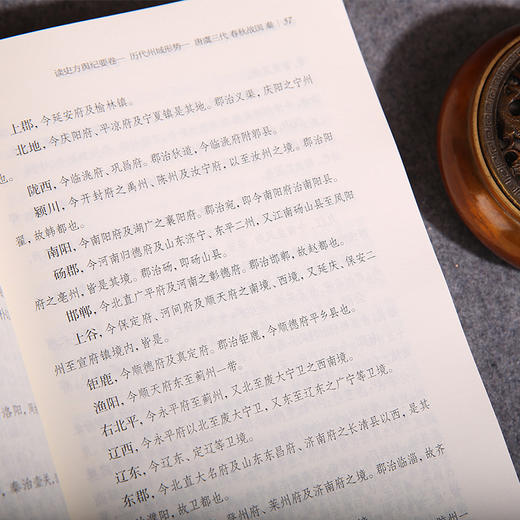 读史方舆纪要卷一 历代州域形势一 唐虞三代 春秋战国 秦 37
上郡,今延安府及榆林镇。
北地,今庆阳府、平凉府及宁夏镇是其地。郡治义渠,庆阳之宁州
也。
陇西,今临洮府、巩昌府。郡治狄道,今临洮府附郭县。
颍川,今开封府之禹州、陈州及汝宁府,以至汝州之境。郡治阳
翟,故韩都也。
南阳,今南阳府及湖广之襄阳府。郡治宛,即今南阳府治南阳县。
砀郡,今河南归德府及山东济宁、东平二州,又江南砀山县至凤阳
府之亳州,皆是其境。郡治砀,即砀山县。
邯郸,今北直广平府及河南之彰德府。郡治邯郸,故赵都也。
上谷,今保定府、河间府及顺天府之南境、西境,又延庆、保安二
州至宣府镇境内,皆是。
钜鹿,今顺德府及真定府。郡治钜鹿,今顺德府平乡县也。
渔阳,今顺天府东至蓟州一带。
右北平,今永平府至蓟州,又北至废大宁卫之西南境。
辽西,今永平府以北至废大宁卫,又东至辽东之广宁等卫境。
辽东,今辽东、定辽等卫境。
东郡,今北直大名府及山东东昌府、济南府之长清县以西,是其
故卫都也。
登州府、莱州府及济南府之境。郡治临淄,故齐